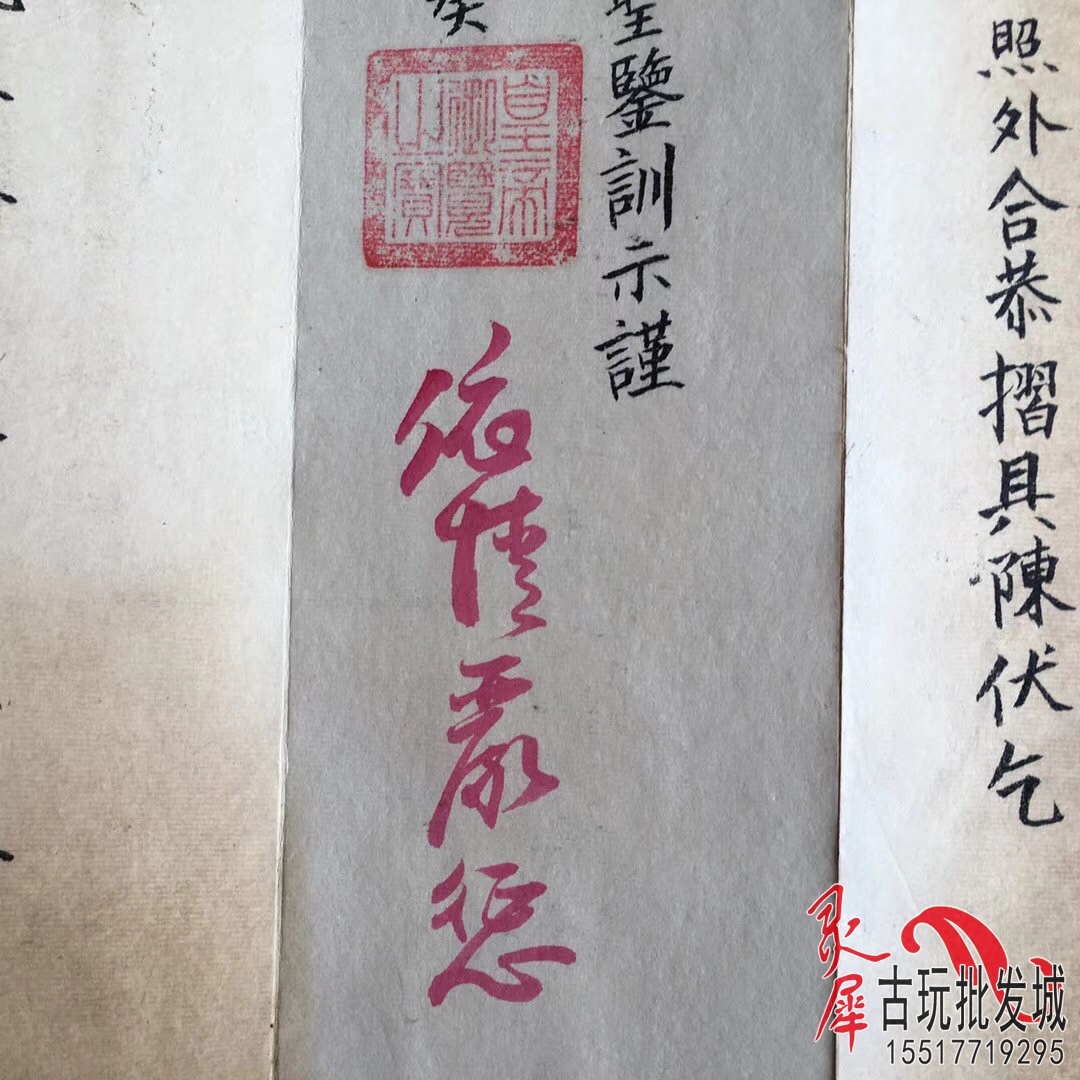 照外合恭摺具陳伏乞
聖鑒訓示謹
奏
皇帝
御覽
之寶
依情嚴懲
灵犀
古玩批发城
15517719295